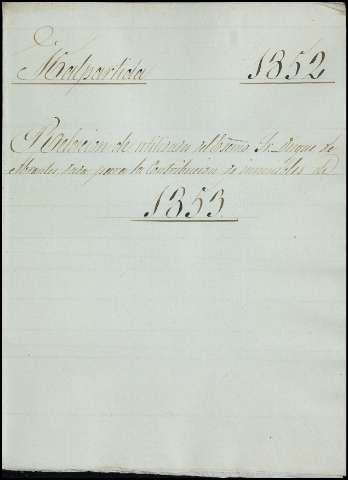 Malpartida 1852
Relacion de utilidades del Excmo Sr. Duque de
Abrantes dada para la Contribucion de inmuebles de
1853